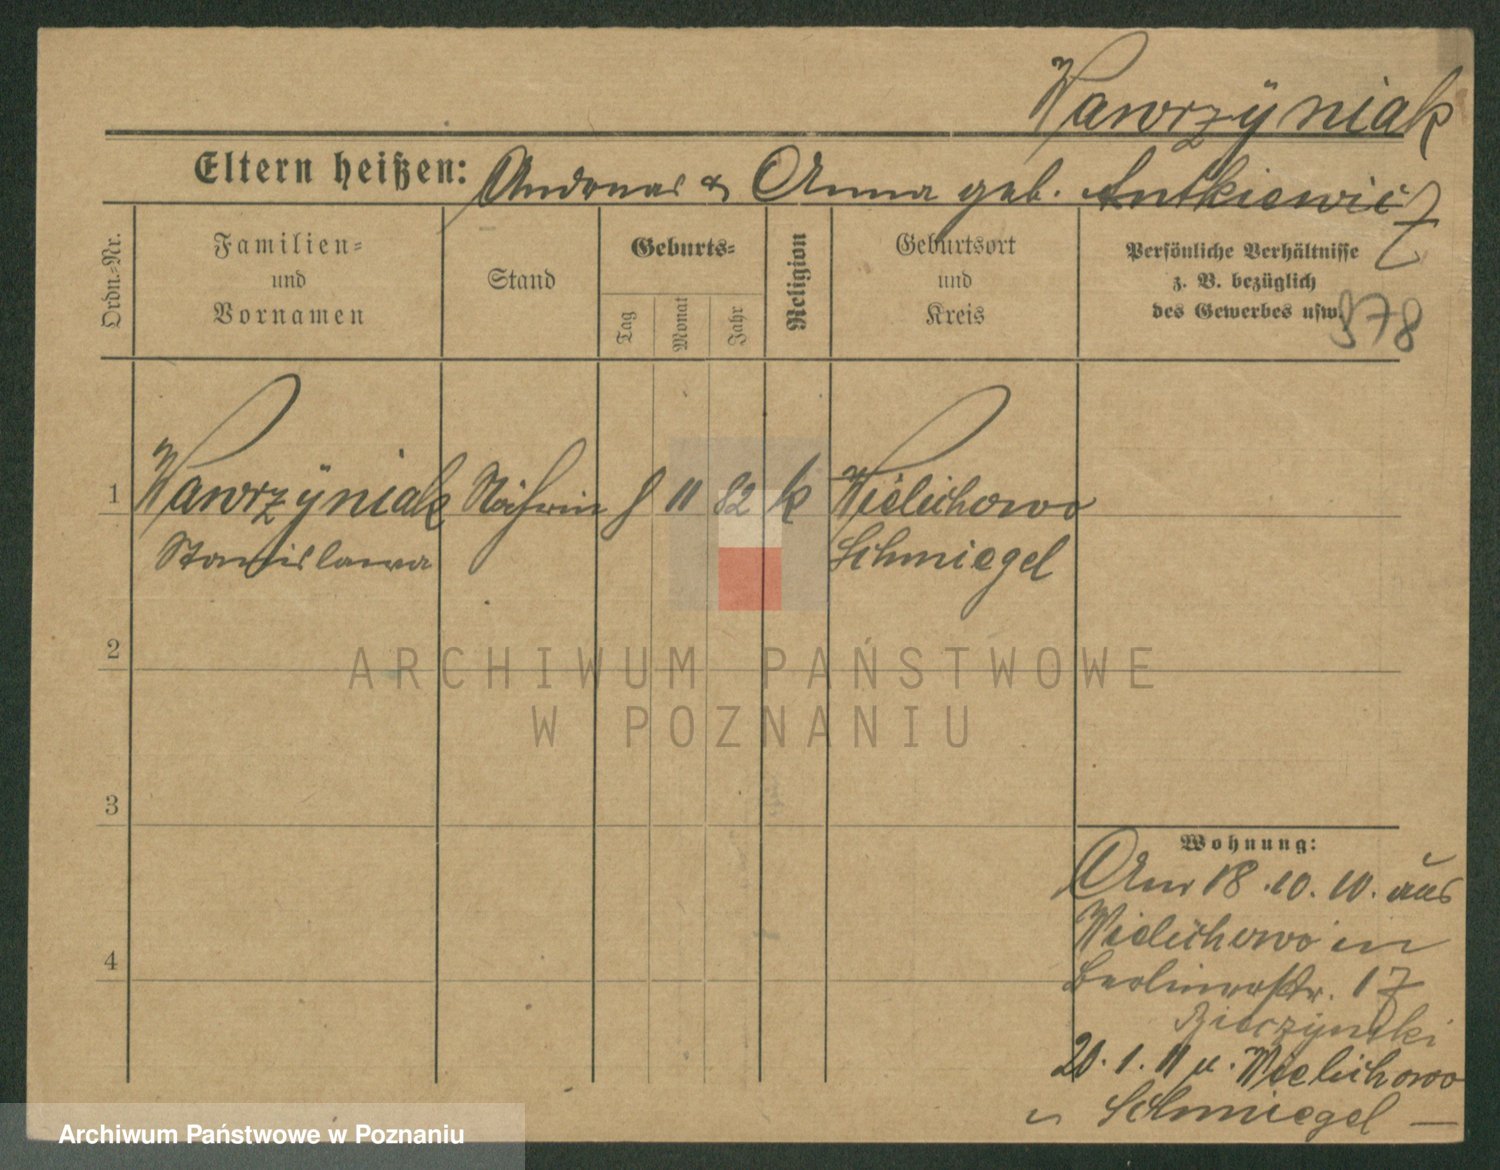 Wawrzÿniak
Eltern heißen: Andreas & Anna geb. Antkiewicz
Ordn.-Nr.
Familien-
und
Vornamen
Stand
Geburts-
Tag
Monat
Jahr
Religion
Geburtsort
und
Kreis
Persönliche Verhältnisse
z. B. bezüglich
des Gewerbes usw.
978
1 Wawrzÿniak Näherin 8 11 82 k Wielichowo
Stanislawa Schmiegel
2
3
4
Wohnung:
Am 18.10.10. aus
Wielichowo in
Berlinerstr. 17
20.1.11 n. Wielichowo
Schmiegel
ARCHIWUM PAŃSTWOWE
W POZNANIU
Archiwum Państwowe w Poznaniu